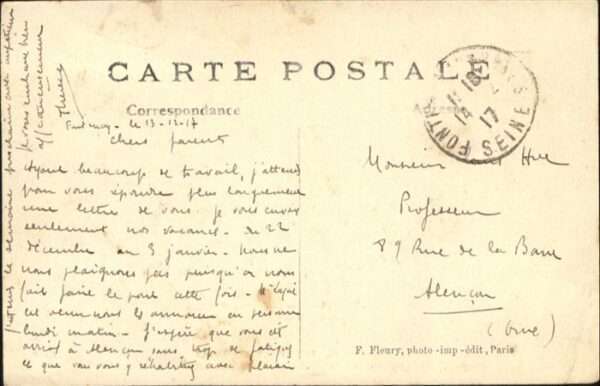 CARTE POSTALE
Correspondance
Fontenay - le 13-12-17
chers parents
Ayant beaucoup de travail, j'attends
pour vous répondre plus longuement
une lettre de vous. Je vous envoie
seulement nos vacances - du 22
décembre au 3 janvier - Nous ne
nous plaignons pas puisqu'on nous
fait faire le pont cette fois -
lundi matin - J'espère que vous êtes
arrivés à Alençon sans trop de fatigue
et que vous vous y avec plaisir
J'attends la semaine prochaine avec impatience
je vous embrasse bien
affectueusement
Monsieur Hue
Professeur
89 Rue de la Barre
Alençon
(Orne)
SEINE
17
F. Fleury, photo-imp-édit, Paris